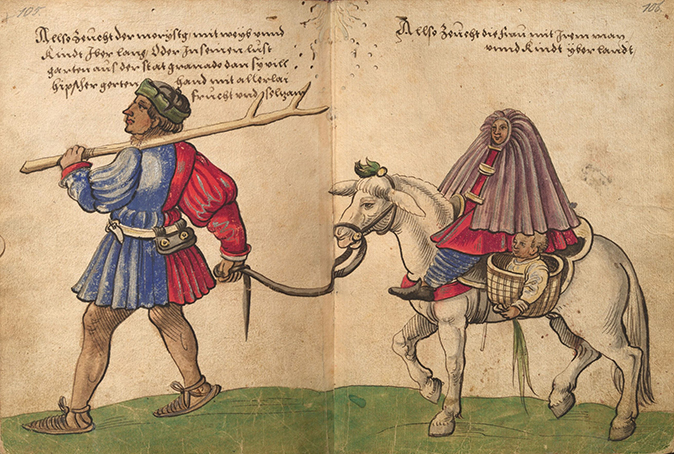 105
Allso Zeücht der moryskg mit weyb unnd
Kindt Iber lang, Oder In seinen lust
garten aus der stat granado dan sy vill
hipscher gerten hand mit allerlai
frucht und solgam
106
Allso Zeücht die frau mit Irem man
unnd Kindt yber landt